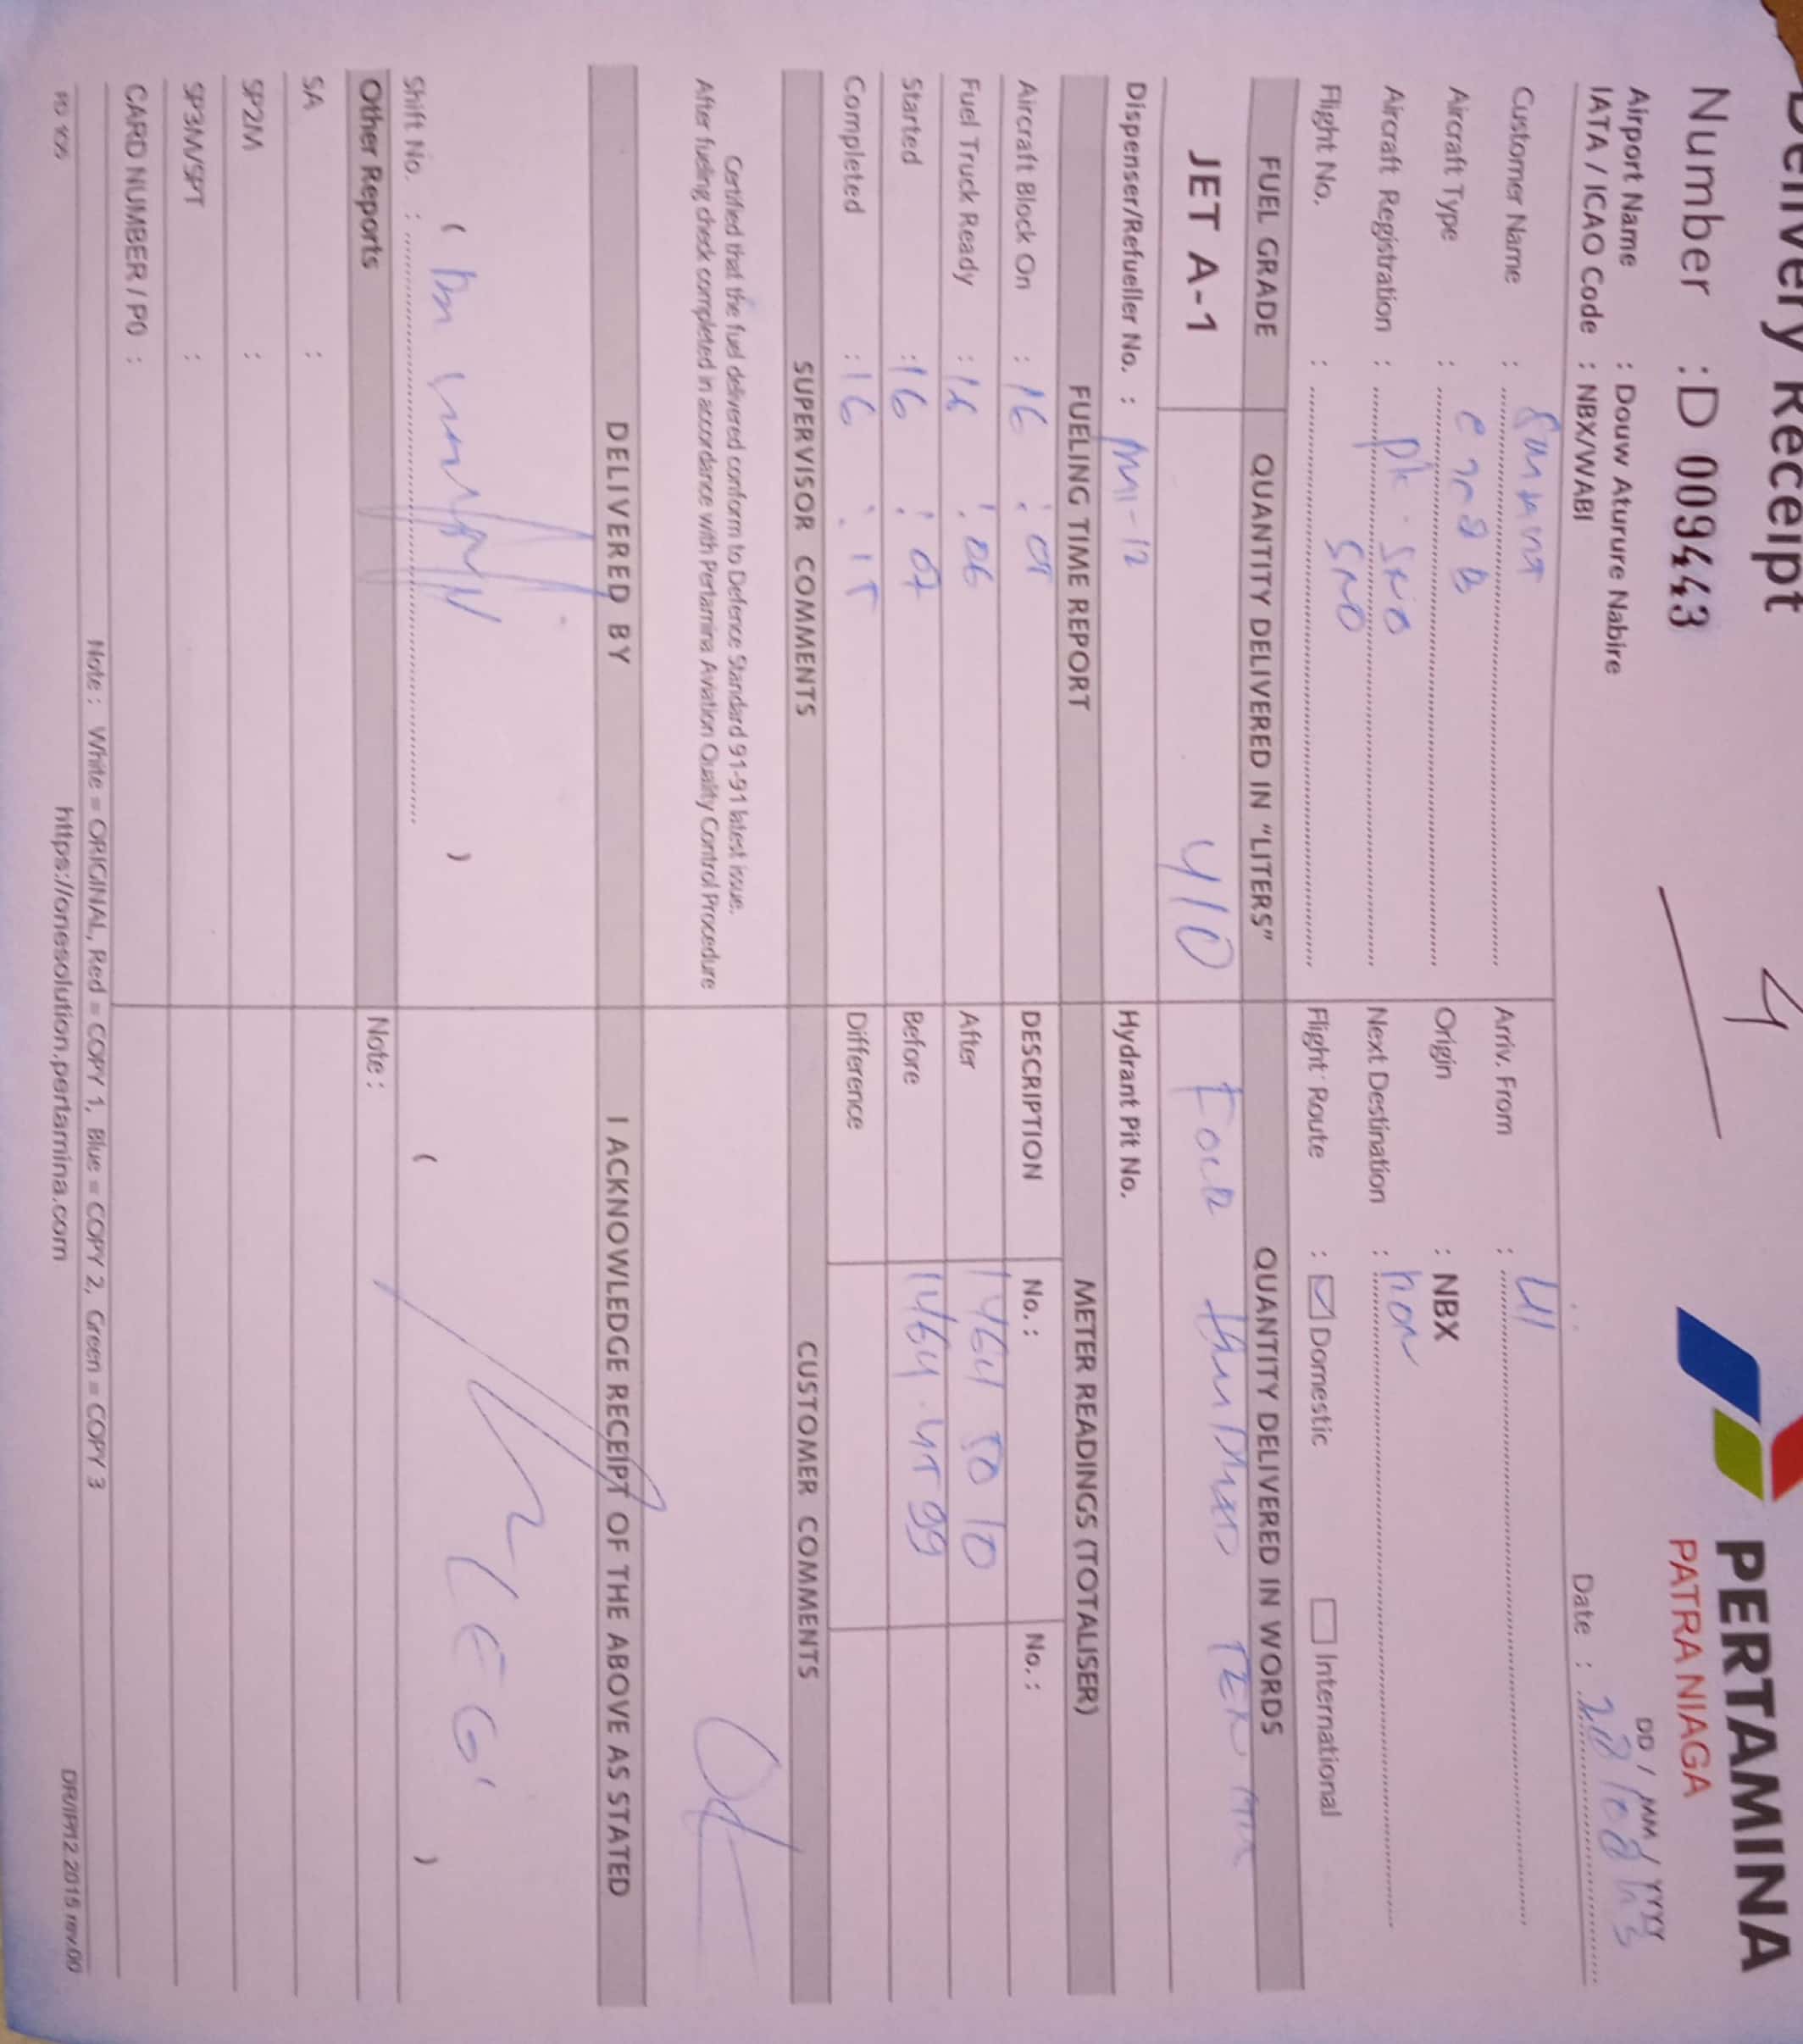 Delivery Receipt
Number : D 009443
4
PERTAMINA
PATRA NIAGA
Airport Name : Douw Aturure Nabire
IATA / ICAO Code : NBX/WABI
DD / MM / YYYY
Date :
Customer Name :
Arriv. From :
Aircraft Type :
Origin : NBX
Aircraft Registration : PK-SNO
Next Destination :
Flight No. : SNO
Flight Route : Domestic International
FUEL GRADE
QUANTITY DELIVERED IN "LITERS"
QUANTITY DELIVERED IN WORDS
JET A-1
410
Dispenser/Refueller No. :
Hydrant Pit No.
FUELING TIME REPORT
METER READINGS (TOTALISER)
Aircraft Block On : 16 :
DESCRIPTION
No. :
No. :
Fuel Truck Ready : 16 : 06
After 1464 50 10
Started : 16 : 07
Before
Completed : 16 : 15
Difference
SUPERVISOR COMMENTS
CUSTOMER COMMENTS
Certified that the fuel delivered conform to Defence Standard 91-91 latest issue.
After fueling check completed in accordance with Pertamina Aviation Quality Control Procedure
OK
DELIVERED BY
I ACKNOWLEDGE RECEIPT OF THE ABOVE AS STATED
( )
( )
Shift No. :
Other Reports
Note :
SA :
SP2M :
SP3M/SPT :
CARD NUMBER / PO :
Note : White = ORIGINAL, Red = COPY 1, Blue = COPY 2, Green = COPY 3
https://onesolution.pertamina.com